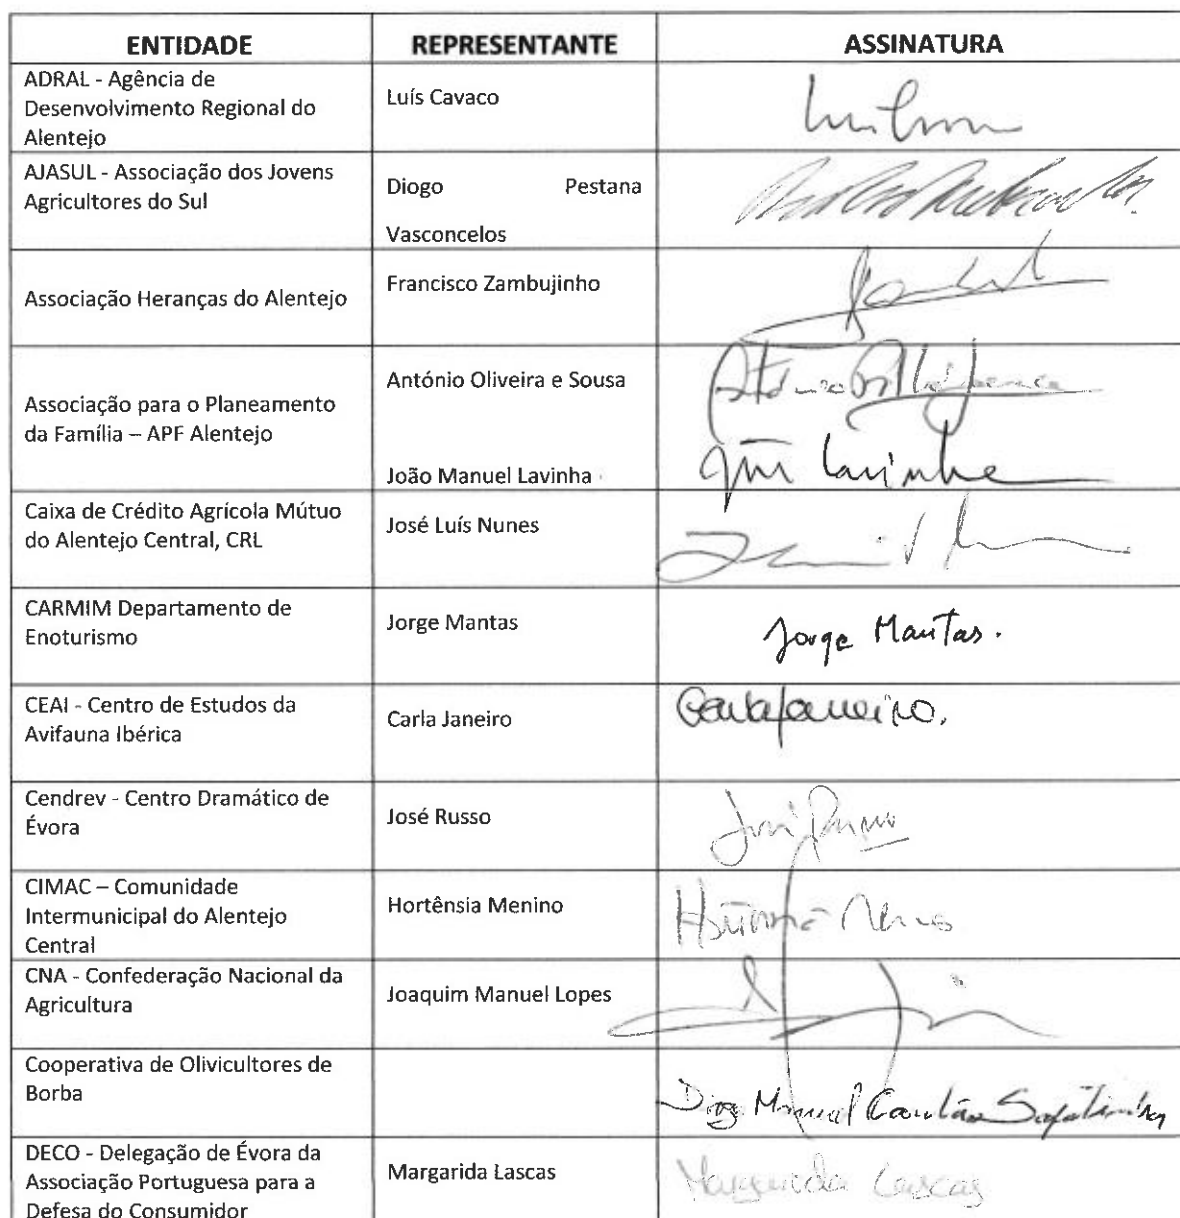 ENTIDADE REPRESENTANTE ASSINATURA
ADRAL - Agência de
Desenvolvimento Regional do
Alentejo
Luís Cavaco
AJASUL - Associação dos Jovens
Agricultores do Sul
Diogo Pestana
Vasconcelos
Associação Heranças do Alentejo
Francisco Zambujinho
Associação para o Planeamento
da Família – APF Alentejo
António Oliveira e Sousa
João Manuel Lavinha
Lavinha
Caixa de Crédito Agrícola Mútuo
do Alentejo Central, CRL
José Luís Nunes
CARMIM Departamento de
Enoturismo
Jorge Mantas
Jorge Mantas.
CEAI - Centro de Estudos da
Avifauna Ibérica
Carla Janeiro
Carla Janeiro.
Cendrev - Centro Dramático de
Évora
José Russo
José Russo
CIMAC – Comunidade
Intermunicipal do Alentejo
Central
Hortênsia Menino
Hortênsia Menino
CNA - Confederação Nacional da
Agricultura
Joaquim Manuel Lopes
Cooperativa de Olivicultores de
Borba
Manuel
DECO - Delegação de Évora da
Associação Portuguesa para a
Defesa do Consumidor
Margarida Lascas
Margarida Lascas